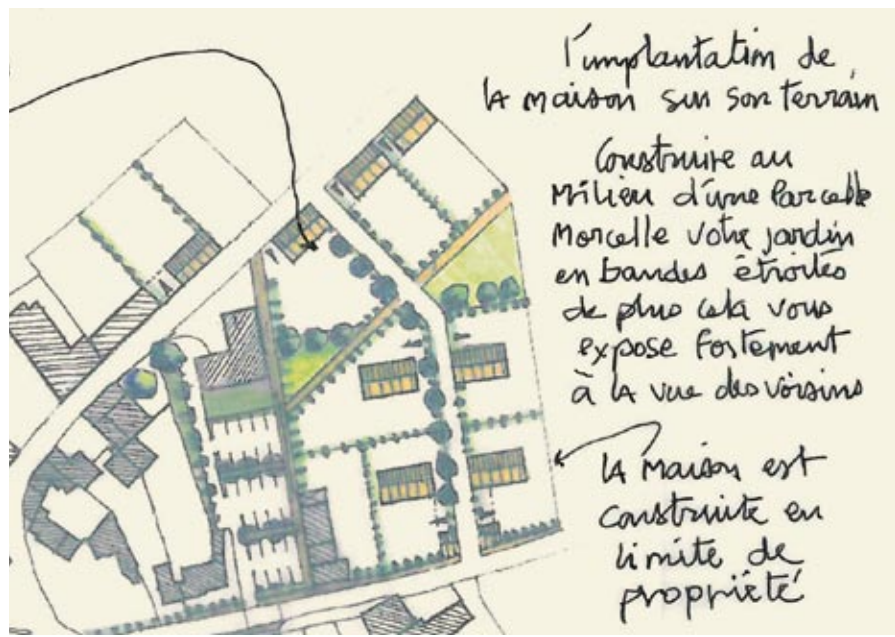 l'implantation de
la maison sur son terrain
Construire au
Milieu d'une Parcelle
Morcelle votre jardin
en bandes étroites
de plus cela vous
expose fortement
à la vue des voisins
la maison est
construite en
limite de
propriété